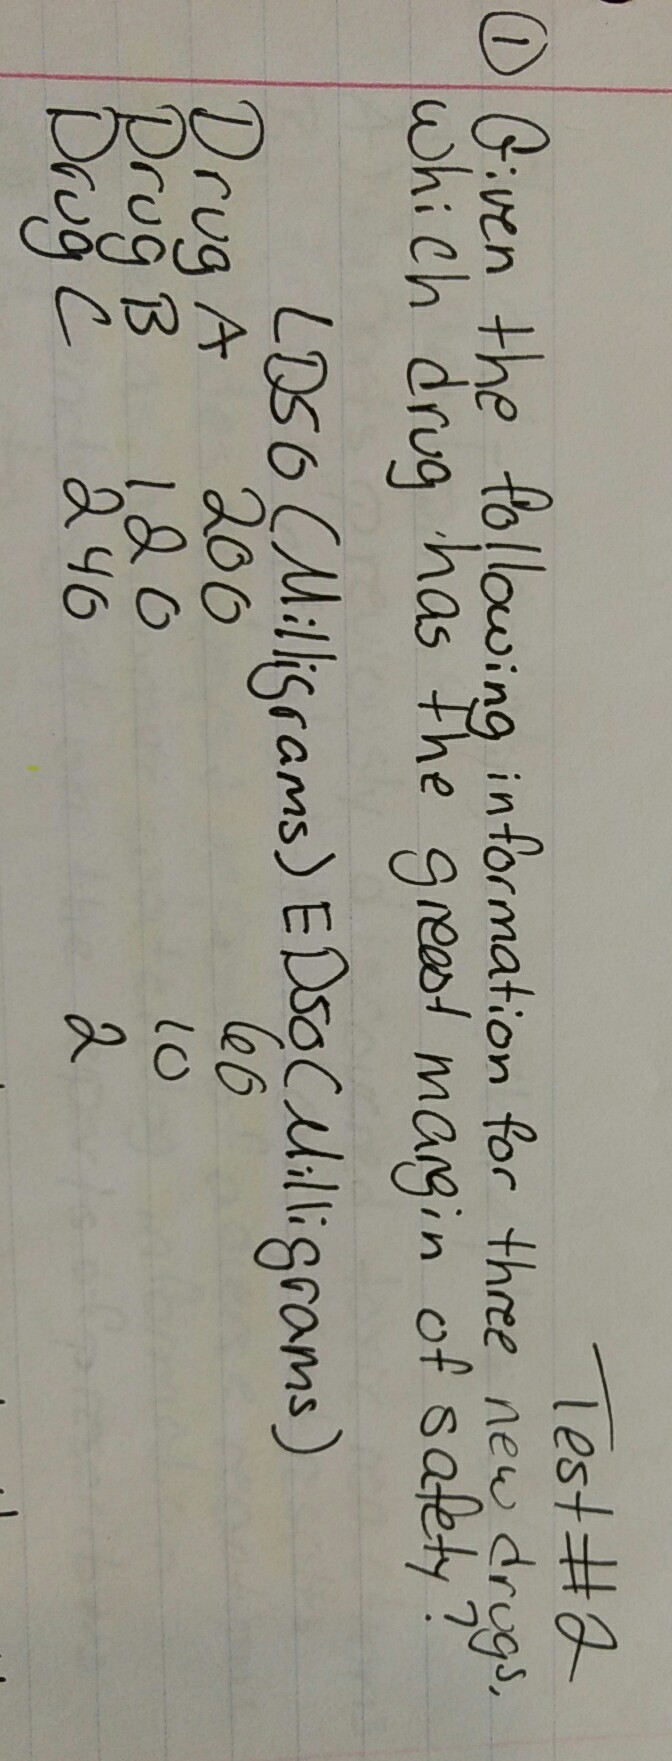 Test #2
① Given the following information for three new drugs,
which drug has the greast margin of safety?
LD50 (Milligrams) ED50 (Milligrams)
Drug A 200 60
Drug B 120 10
Drug C 240 2